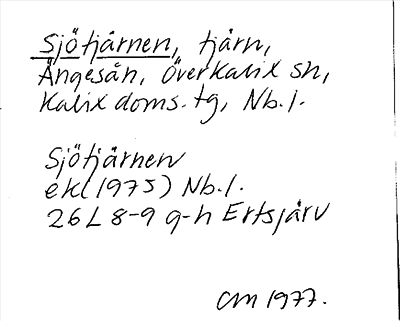 Sjötjärnen, tjärn,
Ängesån, Överkalix sn,
Kalix doms. tg, Nb. l.
Sjötjärnen
ek (1975) Nb. l.
26L 8-9 g-h Ertsjärv
CM 1977.